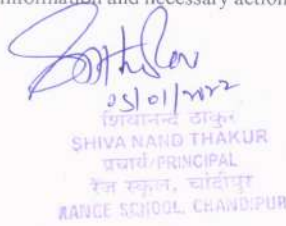 information and necessary action
05/01/2022
शिवानन्द ठाकुर
SHIVA NAND THAKUR
प्राचार्य/PRINCIPAL
रेंज स्कूल, चांदीपुर
RANGE SCHOOL, CHANDIPUR